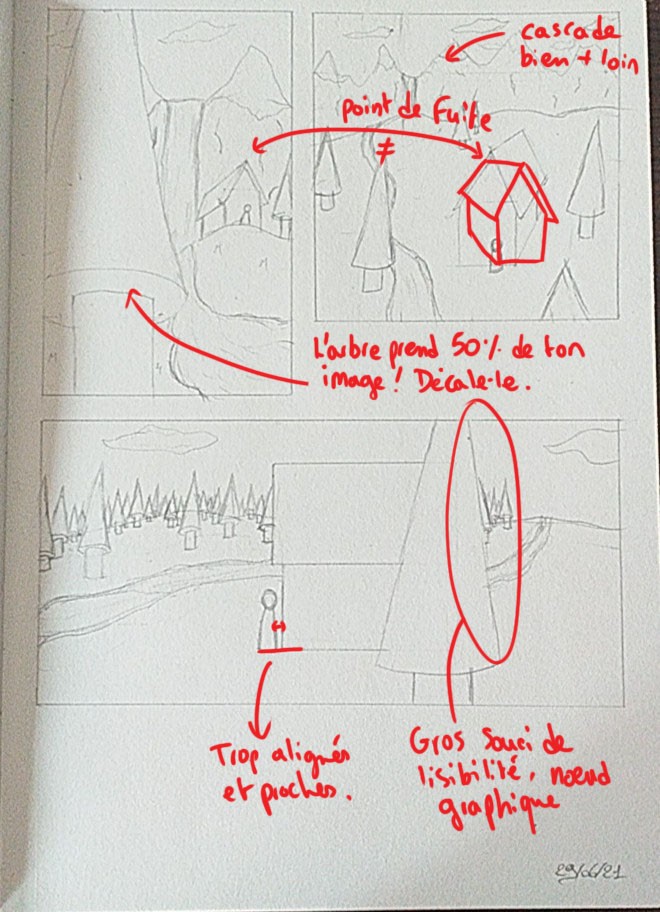 cascade
bien + loin
point de fuite
≠
L'arbre prend 50% de ton
image! Décale-le.
Trop alignés
et proches.
Gros souci de
lisibilité, noeud
graphique
29/06/21